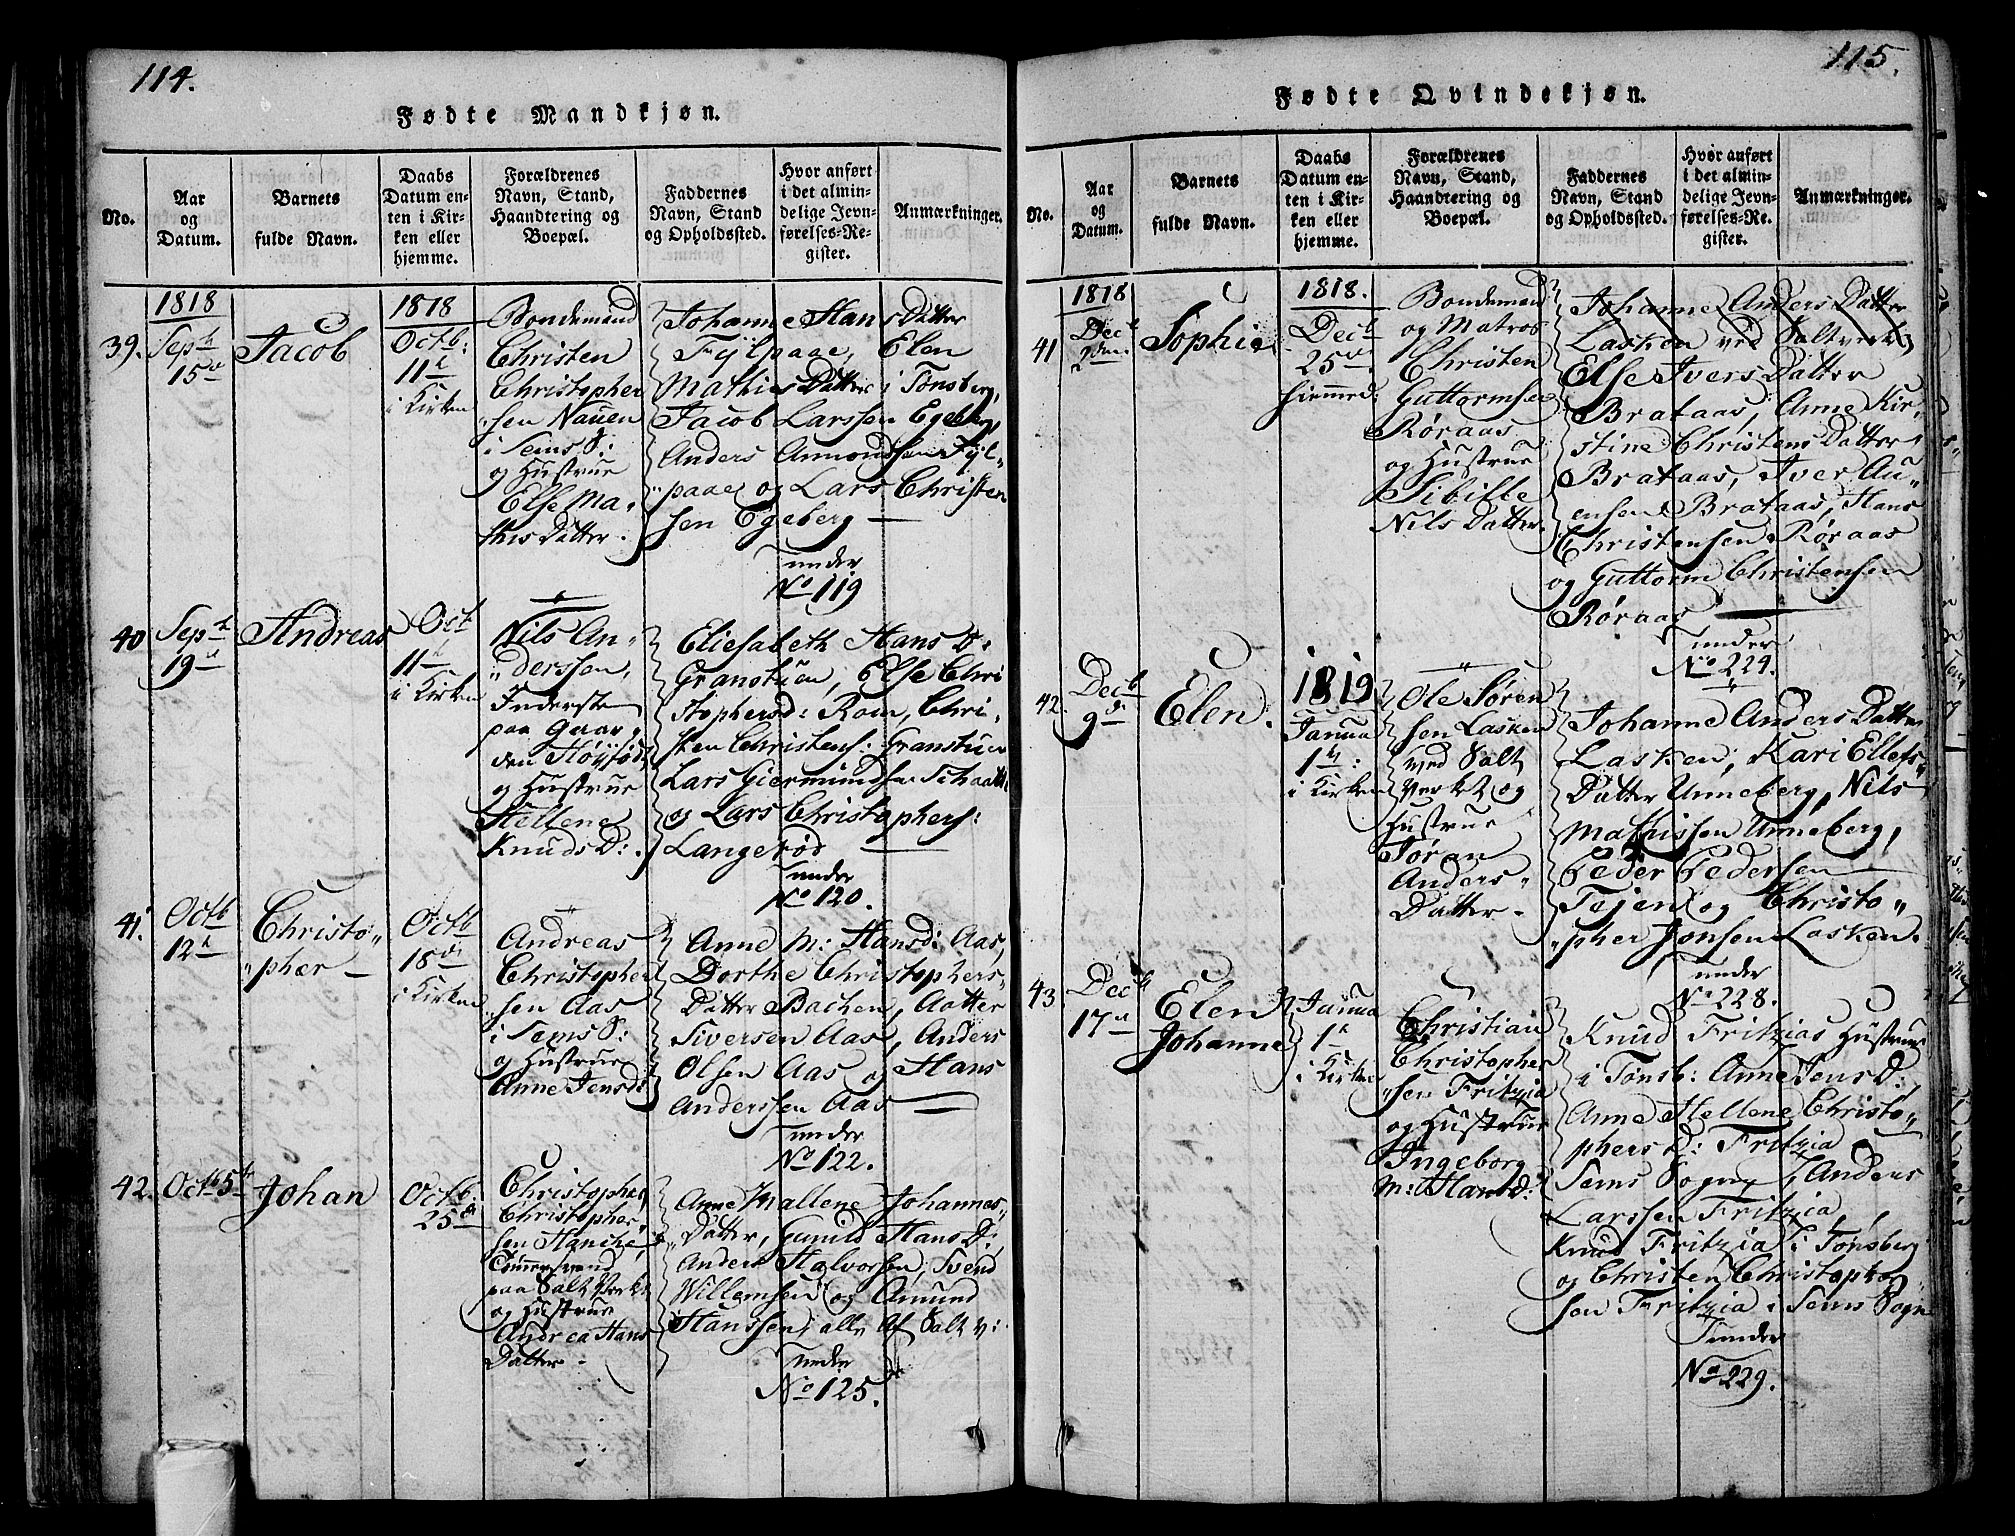 114.
Fødte Mandkjøn.
No.
Aar
og
Datum.
Barnets
fulde Navn.
Daabs
Datum en-
ten i Kir-
ken eller
hjemme.
Forældrenes
Navn, Stand,
Haandtering og
Boepæl.
Faddernes
Navn, Stand
og Opholdssted.
Hvor anført
i det almin-
delige Jevn-
førelses-Re-
gister.
Anmærkninger.
1818
39.
Sept
15de
Jacob
1818
Octb:
11te
i Kirken
Bondemand
Christen
Christopher
sen Nauen
i Sems S:
og Hustrue
Else Ma-
this Datter.
Johanne Hans Datter
Fÿlpaae, Elen
Mathis Datter i Tønsberg,
Jacob Larssen Egeberg,
Anders Amondssen Fÿl-
paae og Lars Christen
sen Egeberg —
under
No 119
40
Sept
19de
Andreas
Oct
11te
i Kirken
Nils An-
derssen,
Inderste
paa Gaar-
den Høÿjød
og Hustrue
Hellene
Knuds D:.
Eliesabeth Hans D:
Granstuen, Else Chri
stophersd: Rom, Chri-
sten Christens: Granstuen
Lars Giermundsen
og Lars Christophers:
Langerød
under
No 120.
41.
Octb
12te
Christo-
phær —
Octb
18de
i Kirken
Andreas
Christopher
sen Aas
i Sems S:
og Hustrue
Anne Jensd:
Anne M: Hansd: Aas,
Dorthe Christophers-
Datter Bachen, Aatter
Siversen Aas, Anders
Olsen Aas og Hans
Anderssen Aas
under
No 122.
42.
Octb 5te
Johan
Octb.
25de
Christopher
Christopher
sen Hanche,
paa Salt Verket
og Hustrue
Andrea Hans
Datter.
Anne Mallene Johannes-
Datter, Gunild Hans D:
Anders Halvorsen, Svend
Willemsen og Amund
Hanssen, alle Af Salt V:
under
No 125.
115.
Fødte Qvindekjøn.
No.
Aar
og
Datum.
Barnets
fulde Navn.
Daabs
Datum en-
ten i Kir-
ken eller
hjemme.
Forældrenes
Navn, Stand,
Haandtering og
Boepæl.
Faddernes
Navn, Stand
og Opholdssted.
Hvor anført
i det almin-
delige Jevn-
førelses-Re-
gister.
Anmærkninger.
1818
41
Decb
2den.
Sophie
1818.
Decb
25de
hiemmed:
Bondemand
og Matros
Christen
Guttormsen
Røraas
og Hustrue
Sibille
Nils Datter.
Johanne Anders Datter
Lasken ved Saltverket
Else Ivers Datter
Brataas, Anne Kir-
stine Christens Datter
Brataas, Iver Au-
ensen Brataas, Hans
Christensen Røraas
og Guttorm Christensen
Røraas —
under
No 224.
42.
Decb
9de
Elen.
1819
Janua
1te:
i Kirken
Ole Søren
sen Lasken
ved Salt
Verket og
Hustrue
Søran
Anders-
Datter.
Johanne Anders Datter
Lasken, Kari Ellefs-
Datter Unneberg, Nils
Mathissen Unneberg,
Peder Pedersen
Tejen og Christo-
pher Jonsen Lasken.
under
No 228.
43
Decb
17de
Elen
Johanne
Janua
1te
i Kirken
Christian
Christopher
sen Fritzia
og Hustrue
Ingeborg
M: Hansd:
Knud Fritzias Hustrue
i Tønsb: Anne Jens D:
Anne Hellene Christo-
phers D: Fritzia
Sems Sogn, Anders
Larssen Fritzia,
Knud Fritzia i Tønsberg
og Christen Christopher
sen Fritzia i Sems Sogn
under
No 229.